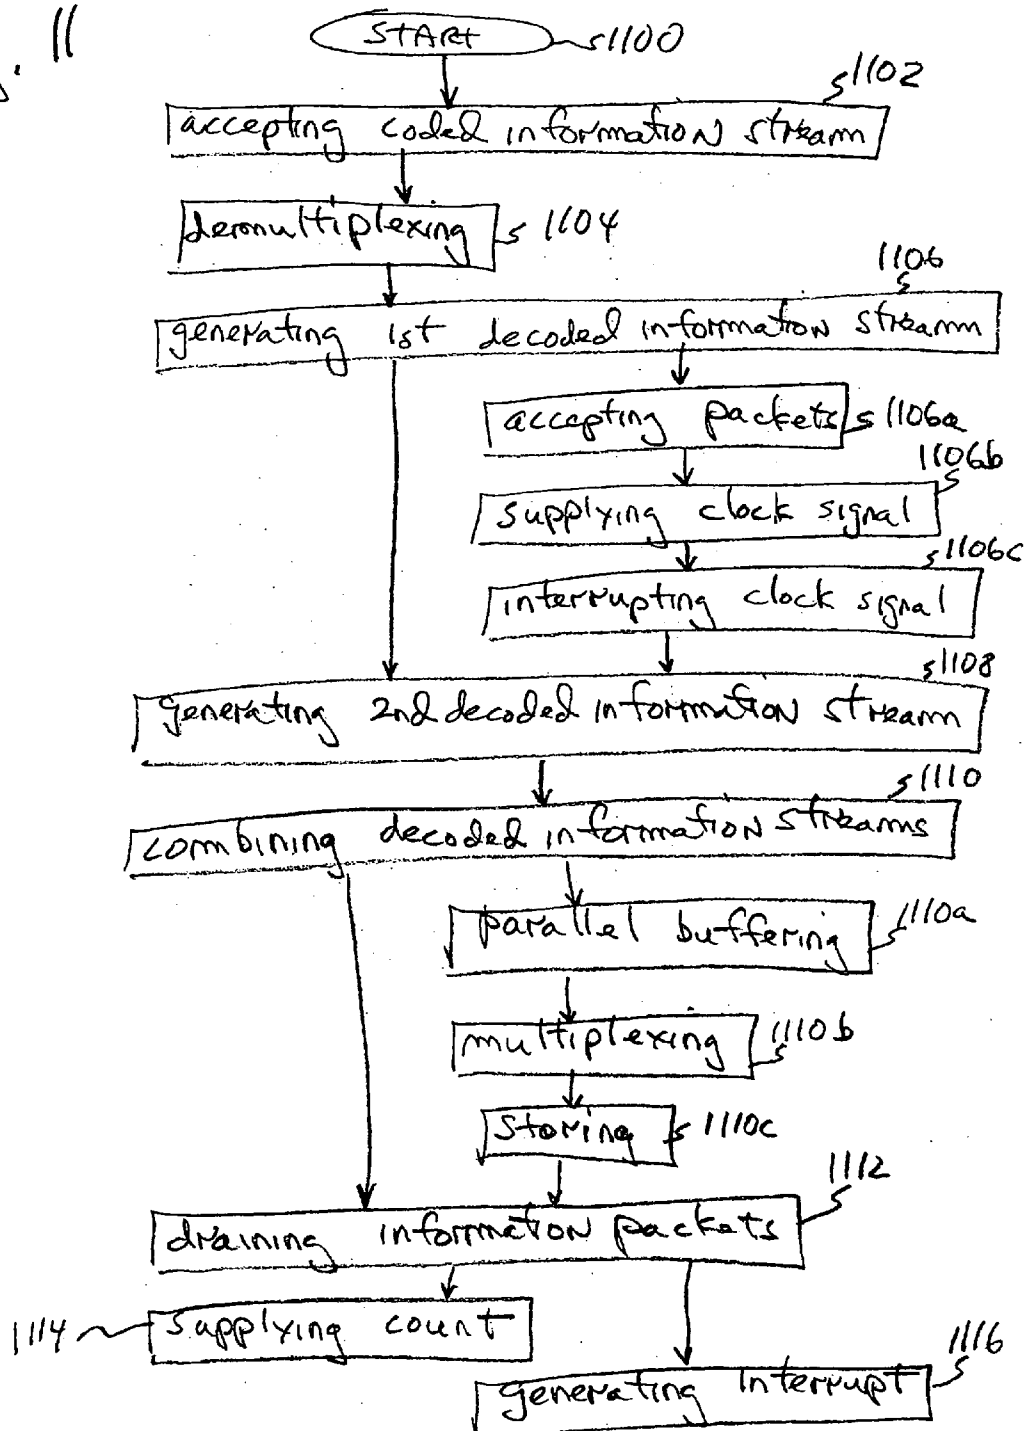 11
START 1100
1102
accepting coded information stream
demultiplexing 1104
1106
generating 1st decoded information stream
accepting packets 1106a
1106b
supplying clock signal
1106c
interrupting clock signal
1108
generating 2nd decoded information stream
1110
combining decoded information streams
parallel buffering 1110a
multiplexing 1110b
storing 1110c
1112
draining information packets
1114 supplying count
1116
generating interrupt